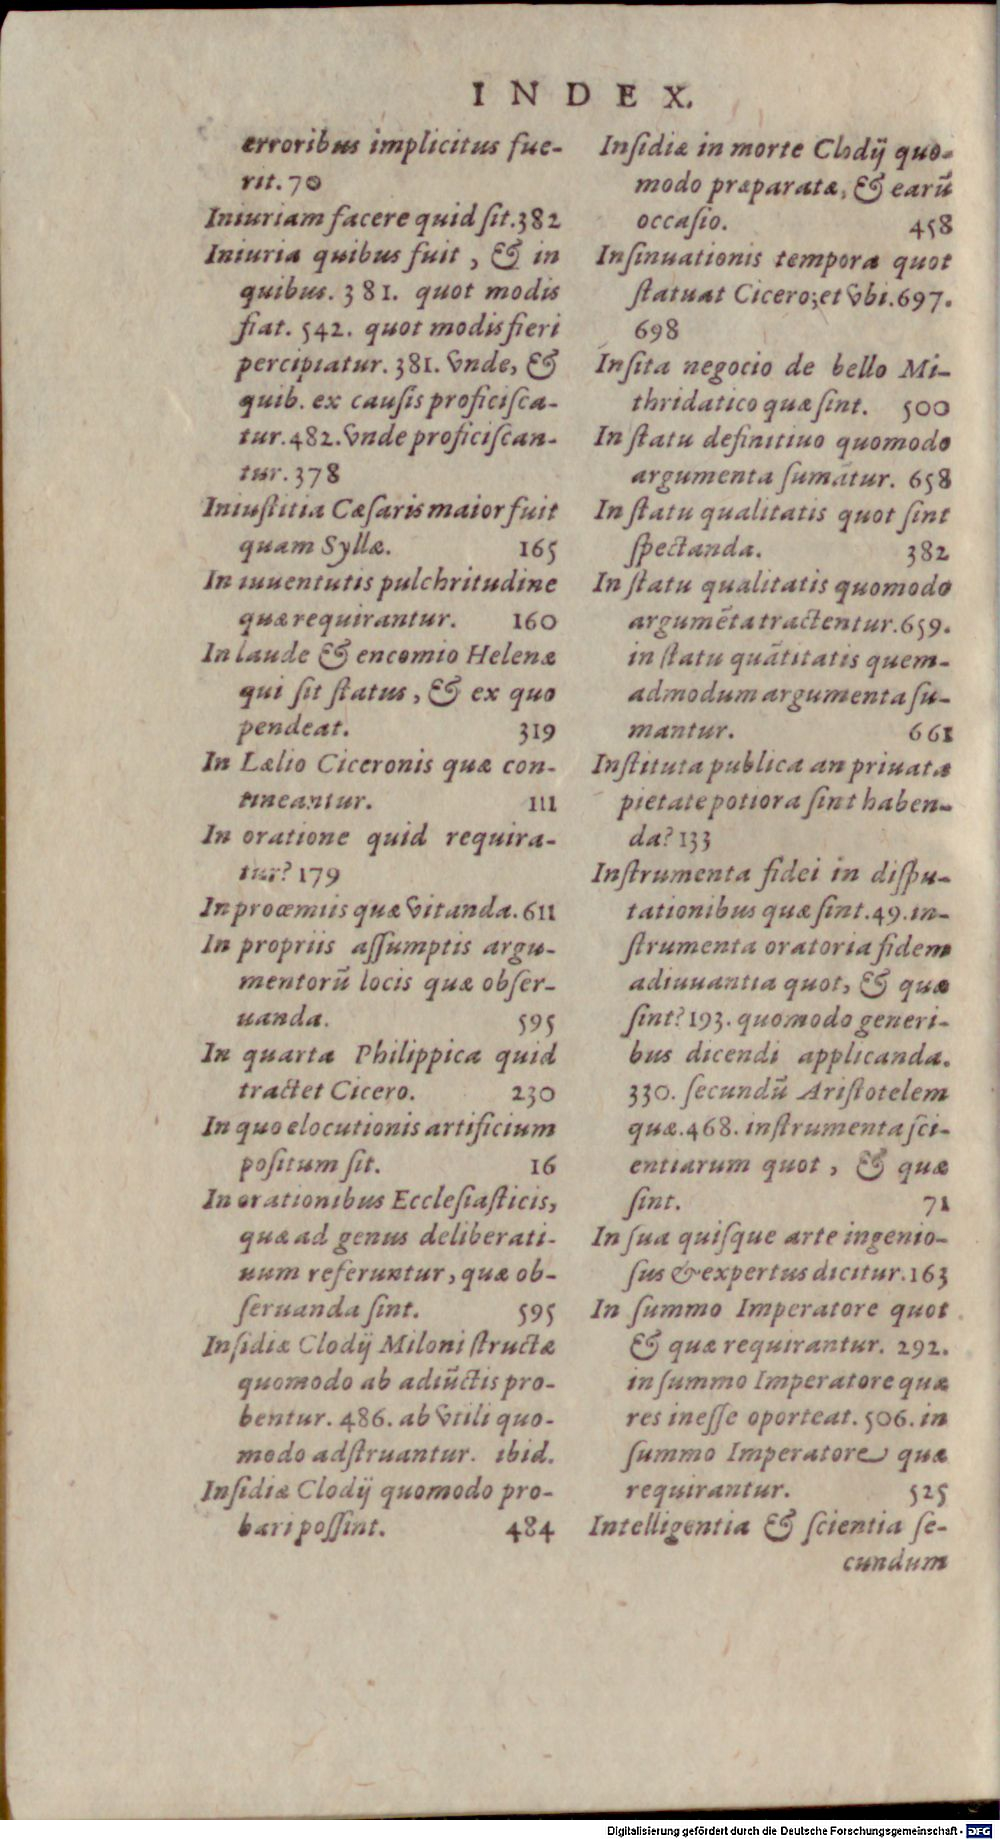 INDEX.
erroribus implicitus fue-
rit. 70
Iniuriam facere quid ſit. 382
Iniuria quibus fuit, & in
quibus. 381. quot modis
fiat. 542. quot modis fieri
percipiatur. 381. vnde, &
quib. ex cauſis proficiſca-
tur. 482. vnde proficiſcan-
tur. 378
Iniuſtitia Cæſaris maior fuit
quam Syllæ. 165
In iuuentutis pulchritudine
quæ requirantur. 160
In laude & encomio Helenæ
qui ſit ſtatus, & ex quo
pendeat. 319
In Lælio Ciceronis quæ con-
tineantur. 111
In oratione quid requira-
tur? 179
In procemiis quæ vitanda. 611
In propriis aſſumptis argu-
mentorũ locis quæ obſer-
uanda. 595
In quarta Philippica quid
tractet Cicero. 230
In quo elocutionis artificium
poſitum ſit. 16
In orationibus Eccleſiaſticis,
quæ ad genus deliberati-
uum referuntur, quæ ob-
ſeruanda ſint. 595
Inſidiæ Clodij Miloni ſtructæ
quomodo ab adiũctis pro-
bentur. 486. ab vtili quo-
modo adſtruantur. ibid.
Inſidiæ Clodij quomodo pro-
bari poſſint. 484
Inſidiæ in morte Clodij quo-
modo præparatæ, & earũ
occaſio. 458
Inſinuationis tempora quot
ſtatuat Cicero; et vbi. 697.
698
Inſita negocio de bello Mi-
thridatico quæ ſint. 500
In ſtatu definitiuo quomodo
argumenta ſumãtur. 658
In ſtatu qualitatis quot ſint
ſpectanda. 382
In ſtatu qualitatis quomodo
argumẽta tractentur. 659.
in ſtatu quãtitatis quem-
admodum argumenta ſu-
mantur. 661
Inſtituta publica an priuata
pietate potiora ſint haben-
da? 133
Inſtrumenta fidei in diſpu-
tationibus quæ ſint. 49. in-
ſtrumenta oratoria fidem
adiuuantia quot, & quæ
ſint? 193. quomodo generi-
bus dicendi applicanda.
330. ſecundũ Ariſtotelem
quæ. 468. inſtrumenta ſci-
entiarum quot, & quæ
ſint. 71
In ſua quiſque arte ingenio-
ſus & expertus dicitur. 163
In ſummo Imperatore quot
& quæ requirantur. 292.
in ſummo Imperatore quæ
res ineſſe oporteat. 506. in
ſummo Imperatore quæ
requirantur. 525
Intelligentia & ſcientia ſe-
cundum
Digitalisierung gefördert durch die Deutsche Forschungsgemeinschaft - DFG